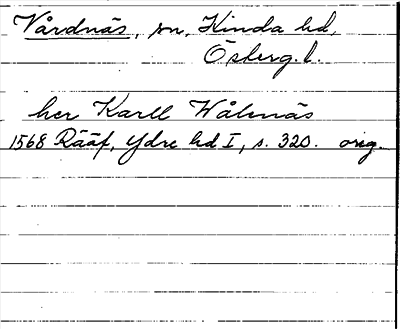 Vårdnäs, sn, Kinda hd,
Österg. l.
her Karll Wålnäs
1568 Rääf, Ydre hd I, s. 320. orig.